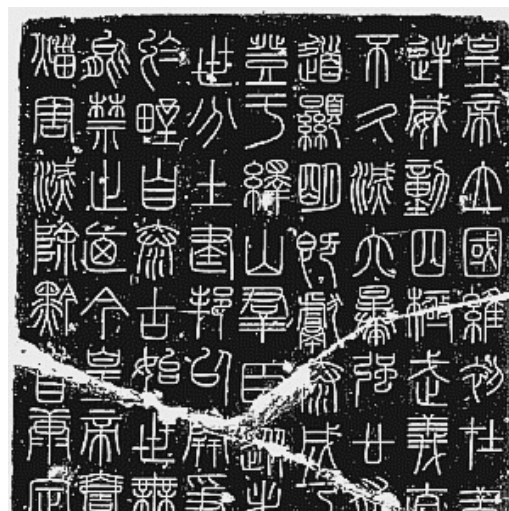 皇帝立國維初在昔
逆威動四極武義直
不久滅六暴強廿有
道顯明既獻泰成乃
登于繹山群臣從者
世分土建邦以開爭
於野自泰古始世無
能禁止迺今皇帝壹
烖害滅除黔首康定